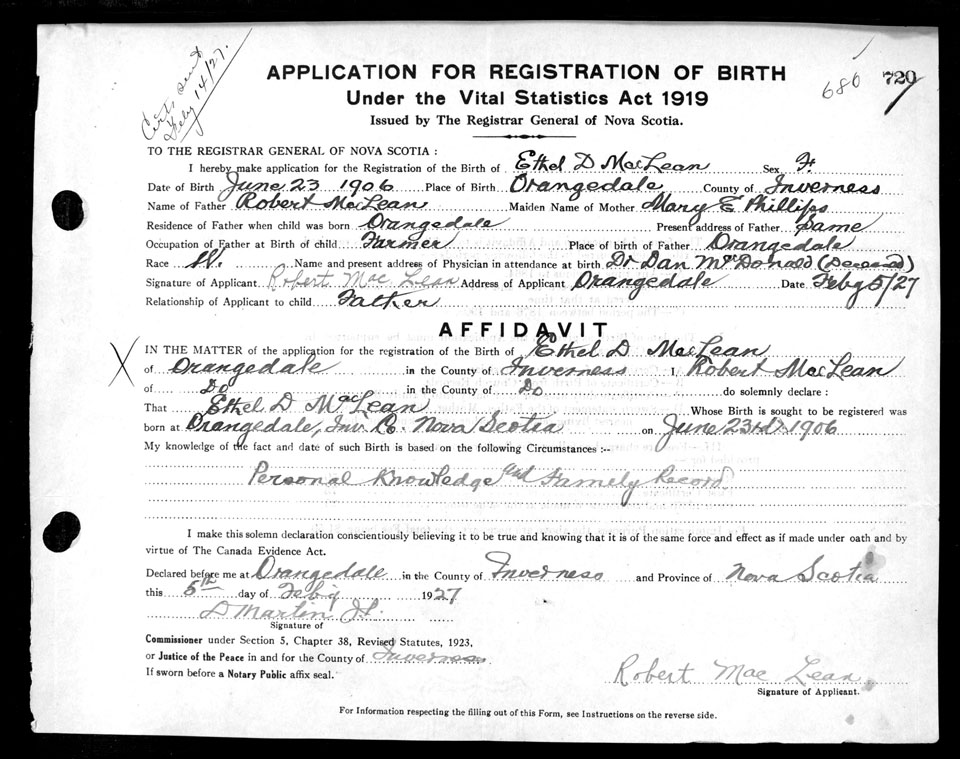 Certs sent
Feby 14/27.
680 720
APPLICATION FOR REGISTRATION OF BIRTH
Under the Vital Statistics Act 1919
Issued by The Registrar General of Nova Scotia.
TO THE REGISTRAR GENERAL OF NOVA SCOTIA :
I hereby make application for the Registration of the Birth of Ethel D MacLean Sex F.
Date of Birth June 23 1906 Place of Birth Orangedale County of Inverness
Name of Father Robert MacLean Maiden Name of Mother Mary E Phillips
Residence of Father when child was born Orangedale Present address of Father Same
Occupation of Father at Birth of child Farmer Place of birth of Father Orangedale
Race W. Name and present address of Physician in attendance at birth Dr Dan McDonald (Deceased)
Signature of Applicant Robert Mac Lean Address of Applicant Orangedale Date Feby 5/27
Relationship of Applicant to child Father
AFFIDAVIT
X IN THE MATTER of the application for the registration of the Birth of Ethel D MacLean
of Orangedale in the County of Inverness I, Robert MacLean
of Do in the County of Do do solemnly declare :
That Ethel D MacLean Whose Birth is sought to be registered was
born at Orangedale, Inv. Co. Nova Scotia on June 23rd 1906
My knowledge of the fact and date of such Birth is based on the following Circumstances :--
Personal Knowledge and Family Record
I make this solemn declaration conscientiously believing it to be true and knowing that it is of the same force and effect as if made under oath and by
virtue of The Canada Evidence Act.
Declared before me at Orangedale in the County of Inverness and Province of Nova Scotia
this 5th day of Feby 1927
D Martin J.P.
Signature of
Commissioner under Section 5, Chapter 38, Revised Statutes, 1923,
or Justice of the Peace in and for the County of Inverness
If sworn before a Notary Public affix seal.
Robert Mac Lean
Signature of Applicant.
For Information respecting the filling out of this Form, see Instructions on the reverse side.